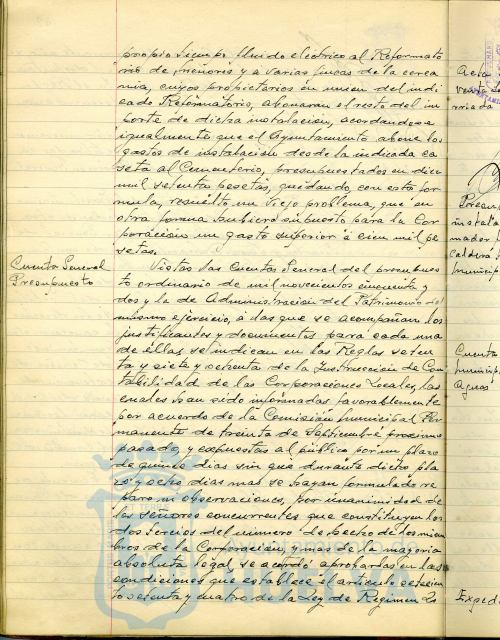 propio tiempo fluido eléctrico al Reformato
rio de menores y a varias fincas de la cerca
nía, cuyos propietarios en unión del indi
cado Reformatorio, abonaran el resto del im
porte de dicha instalación, acordandose
igualmente que el Ayuntamiento abone los
gastos de instalación desde la indicada ca
seta al Cementerio, presupuestados en diez
mil setenta pesetas, quedando, con esta for
mula, resuelto un viejo problema, que en
otra forma hubiera supuesto para la Cor
poración un gasto superior á cien mil pe
setas.
Cuenta General
Presupuesto
Vistas las Cuentas General del presupues
to ordinario de mil novecientos cincuenta y
dos y la de Administración del Patrimonio del
mismo ejercicio, á las que se acompañan los
justificantes y documentos para cada una
de éllas se indican en las Reglas seten
ta y siete y ochenta de la Instrucción de Con
tabilidad de las Corporaciones Locales, las
cuales han sido informadas favorablemente
por acuerdo de la Comisión municipal Per
manente de treinta de Septiembre próximo
pasado, y expuestas al público por un plazo
de quince días sin que durante dicho pla
zo y ocho días mas se hayan formulado re
paro ni observaciones, por unanimidad de
los señores concurrentes que constituyen los
dos tercios del número de hecho de los miem
bros de la Corporación, y mas de la mayoria
absoluta legal, se acordó aprobarlas en las
condiciones que establece el articulo setecien
tos setenta y cuatro de la Ley de Regimen Lo
Acta
Cuenta
municip
aguas
Exped